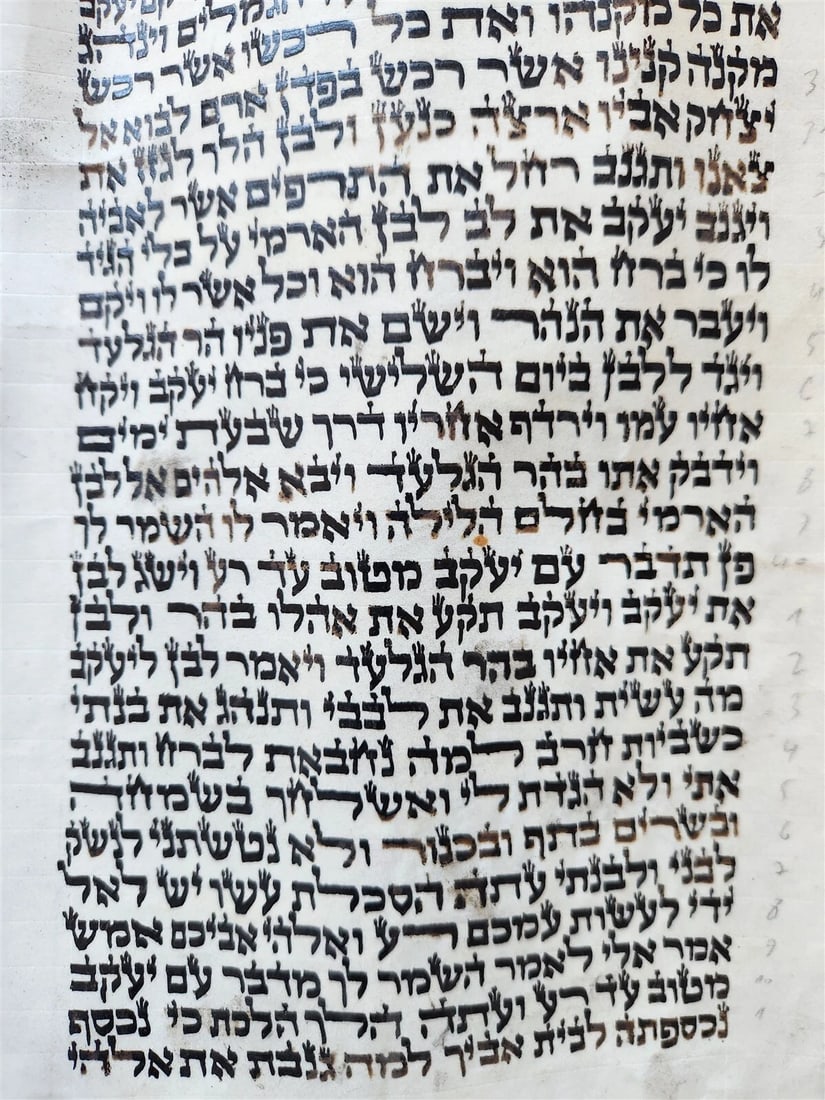 יעקב
הגמלים וינהג
את כל מקנהו ואת כל רכשו אשר רכש
מקנה קנינו אשר רכש בפדן ארם לבוא אל
יצחק אביו ארצה כנען ולבן הלך לגזז את
צאנו ותגנב רחל את התרפים אשר לאביה
ויגנב יעקב את לב לבן הארמי על בלי הגיד
לו כי ברח הוא ויברח הוא וכל אשר לו ויקם
ויעבר את הנהר וישם את פניו הר הגלעד
ויגד ללבן ביום השלישי כי ברח יעקב ויקח
אחיו עמו וירדף אחריו דרך שבעת ימים
וידבק אתו בהר הגלעד ויבא אלהים אל לבן
הארמי בחלם הלילה ויאמר לו השמר לך
פן תדבר עם יעקב מטוב עד רע וישג לבן
את יעקב ויעקב תקע את אהלו בהר ולבן
תקע את אחיו בהר הגלעד ויאמר לבן ליעקב
מה עשית ותגנב את לבבי ותנהג את בנתי
כשביות חרב למה נחבאת לברח ותגנב
אתי ולא הגדת לי ואשלחך בשמחה
ובשרים בתף ובכנור ולא נטשתני לנשק
לבני ולבנתי עתה הסכלת עשו יש לאל
ידי לעשות עמכם רע ואלהי אביכם אמש
אמר אלי לאמר השמר לך מדבר עם יעקב
מטוב עד רע ועתה הלך הלכת כי נכסף
נכספתה לבית אביך למה גנבת את אלהי